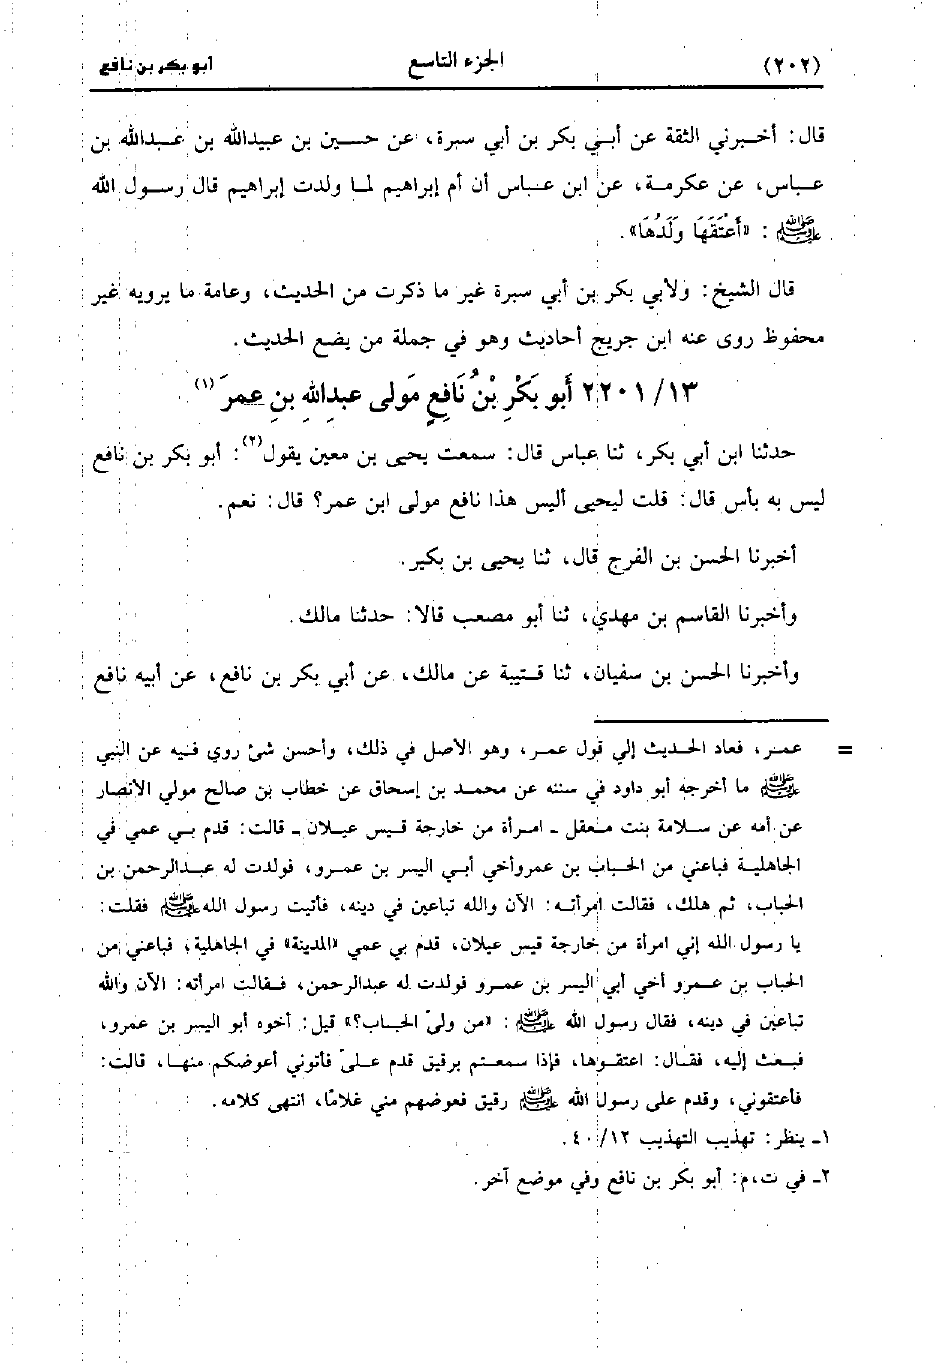 (٢٠٢) الجزء التاسع أبو بكر بن نافع
قال: أخبرني الثقة عن أبي بكر بن أبي سبرة، عن حسين بن عبيدالله بن عبدالله بن
عباس، عن عكرمة، عن ابن عباس أن أم إبراهيم لما ولدت إبراهيم قال رسول الله
ﷺ: «أَعْتَقَهَا وَلَدُهَا».
قال الشيخ: ولأبي بكر بن أبي سبرة غير ما ذكرت من الحديث، وعامة ما يرويه غير
محفوظ روى عنه ابن جريج أحاديث وهو في جملة من يضع الحديث.
٢٢٠١/١٣ أَبو بَكْرِ بْنُ نَافِعٍ مَولى عبدِاللهِ بنِ عمرَ(١)
حدثنا ابن أبي بكر، ثنا عباس قال: سمعت يحيى بن معين يقول(٢): أبو بكر بن نافع
ليس به بأس قال: قلت ليحيى أليس هذا نافع مولى ابن عمر؟ قال: نعم.
أخبرنا الحسن بن الفرج قال، ثنا يحيى بن بكير.
وأخبرنا القاسم بن مهدي، ثنا أبو مصعب قالا: حدثنا مالك.
وأخبرنا الحسن بن سفيان، ثنا قتيبة عن مالك، عن أبي بكر بن نافع، عن أبيه نافع
= عمر، فعاد الحديث إلي قول عمر، وهو الأصل في ذلك، وأحسن شئ روي فيه عن النبي
ﷺ ما أخرجه أبو داود في سننه عن محمد بن إسحاق عن خطاب بن صالح مولي الأنصار
عن أمه عن سلامة بنت معقل ـ امرأة من خارجة قيس عيلان ـ قالت: قدم بي عمي في
الجاهلية فباعني من الحباب بن عمروأخي أبي اليسر بن عمرو، فولدت له عبدالرحمن بن
الحباب، ثم هلك، فقالت امرأته: الآن والله تباعين في دينه، فأتيت رسول الله ﷺ فقلت:
يا رسول الله إني امرأة من خارجة قيس عيلان، قدم بي عمي «المدينة» في الجاهلية، فباعني من
الحباب بن عمرو أخي أبي اليسر بن عمرو فولدت له عبدالرحمن، فقالت امرأته: الآن والله
تباعين في دينه، فقال رسول الله ﷺ: «من وليّ الحباب؟» قيل: أخوه أبو اليسر بن عمرو،
فبعث إليه، فقال: اعتقوها، فإذا سمعتم برقيق قدم عليّ فأتوني أعوضكم منها، قالت:
فأعتقوني، وقدم على رسول الله ﷺ رقيق فعوضهم مني غلامًا، انتهى كلامه.
١ـ ينظر: تهذيب التهذيب ٤٠/١٢.
٢ـ في ت،م: أبو بكر بن نافع وفي موضع آخر.